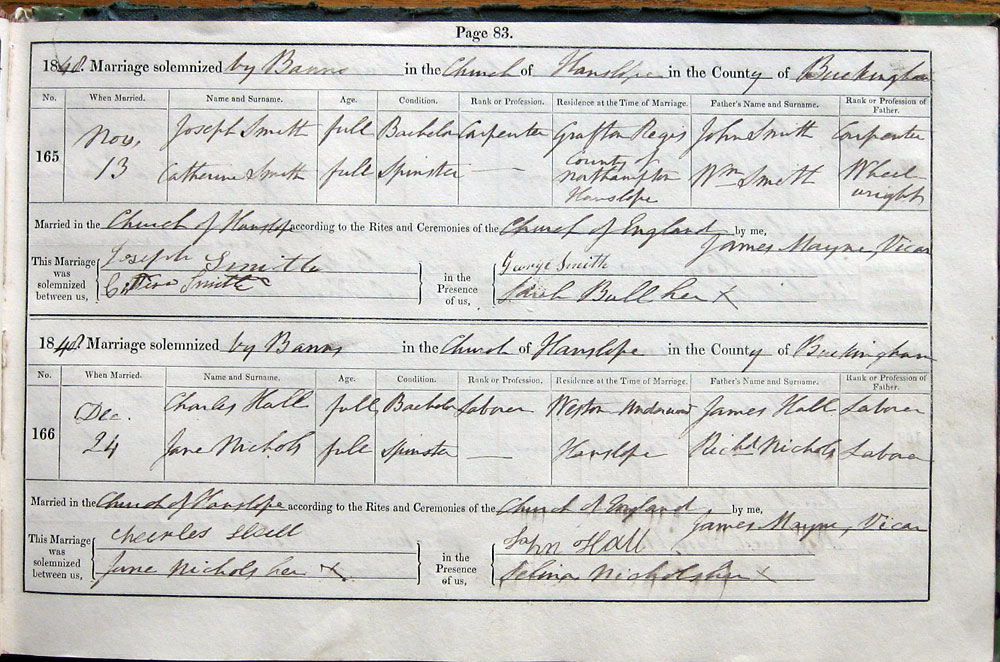 Page 83.
1848. Marriage solemnized by Banns in the Church of Hanslope in the County of Buckingham
No. When Married. Name and Surname. Age. Condition. Rank or Profession. Residence at the Time of Marriage. Father's Name and Surname. Rank or Profession of Father.
165 Nov. 13 Joseph Smith full Bachelor Carpenter Grafton Regis County of Northampton John Smith Carpenter
Catherine Smith full Spinster — Hanslope Wm Smith Wheelwright
Married in the Church of Hanslope according to the Rites and Ceremonies of the Church of England by me,
James Mayne, Vicar
This Marriage was solemnized between us, Joseph Smith in the Presence of us, George Smith
Smith Sarah Bull her X
1848. Marriage solemnized by Banns in the Church of Hanslope in the County of Buckingham
No. When Married. Name and Surname. Age. Condition. Rank or Profession. Residence at the Time of Marriage. Father's Name and Surname. Rank or Profession of Father.
166 Dec. 24 Charles Hall full Bachelor Laborer Weston Underwood James Hall Laborer
Jane Nichols full Spinster — Hanslope Richd Nichols Laborer
Married in the Church of Hanslope according to the Rites and Ceremonies of the Church of England by me,
James Mayne, Vicar
This Marriage was solemnized between us, Charles Hall in the Presence of us, John Hall
Jane Nichols her X Selina Nichols her X